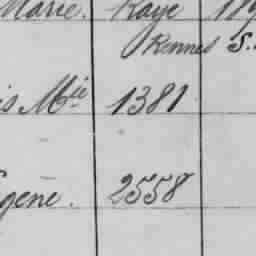 Marie. Raye 189
Rennes S.
is Mie 1381
gène. 2558